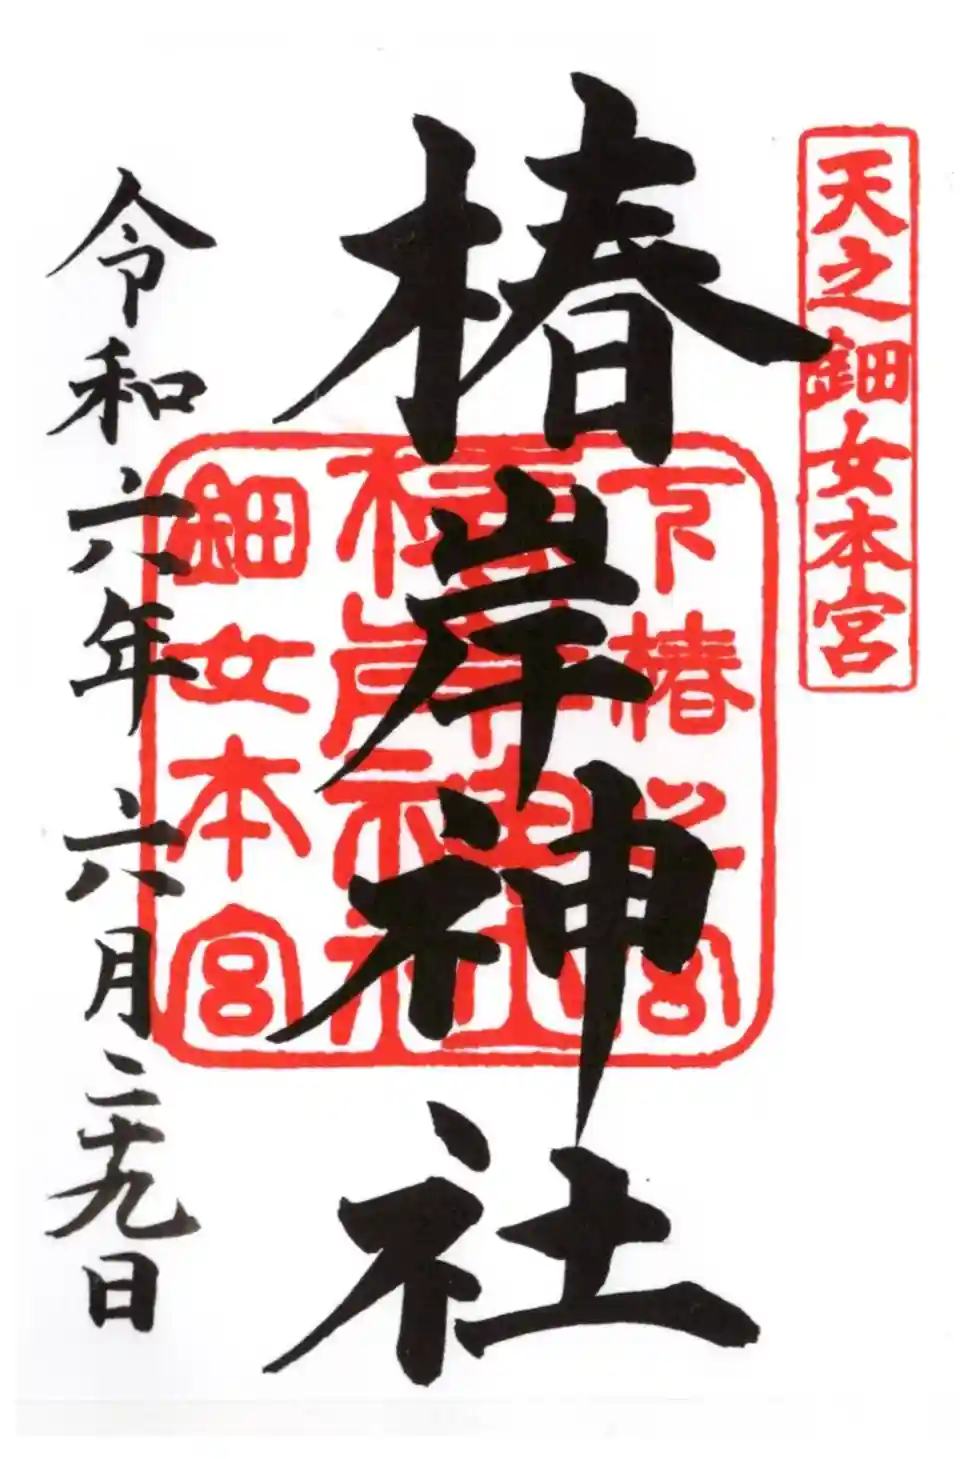 天之鈿女本宮
椿岸神社
下椿
宮
椿岸神社
鈿女本宮
令和六年六月二十九日